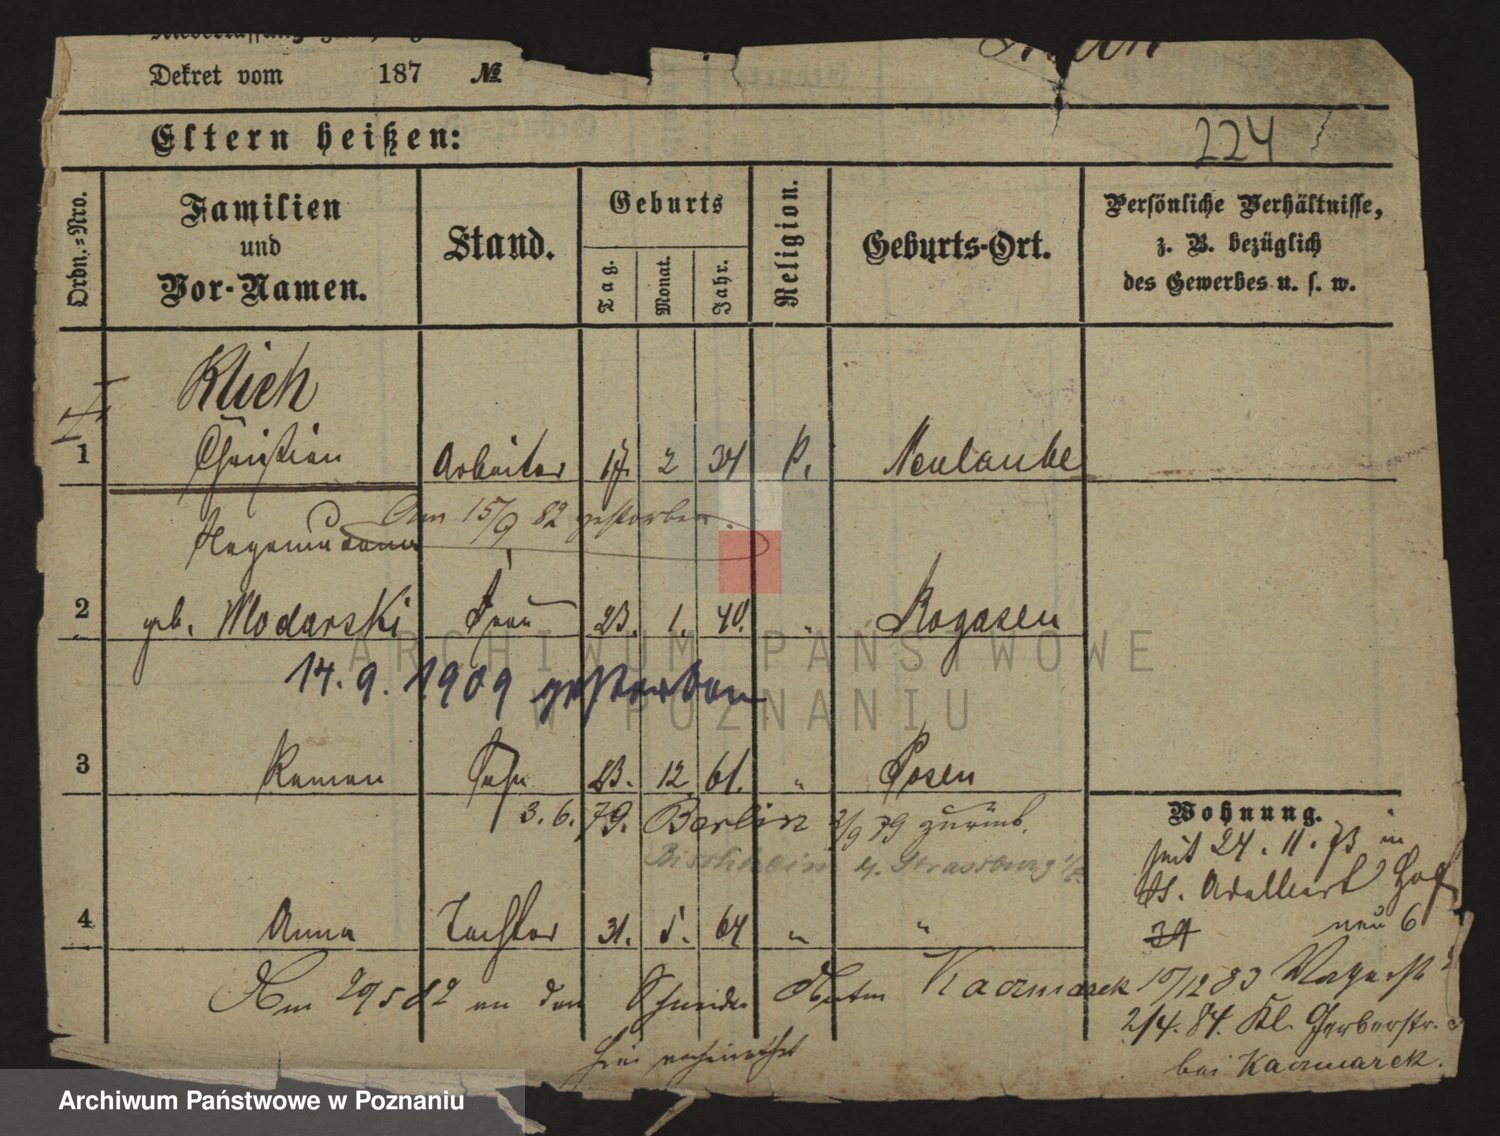 Dekret vom 187 №
Eltern heißen:
224
Ordn.=Nro.
Familien
und
Vor-Namen.
Stand.
Geburts
Tag.
Monat.
Jahr.
Religion.
Geburts-Ort.
Persönliche Verhältnisse,
z. B. bezüglich
des Gewerbes u. s. w.
Klich
1 Christian Arbeiter 17. 2 34 P. Neulaube
Am 15/9 82 gestorben.
2 geb. Wlodarski Frau 23. 1. 40. " Rogasen
14. 9. 1909 gestorben
3 Roman Sohn 23. 12. 61. " Posen
3. 6. 79. Berlin 2/9 79 zurück.
Bischheim b. Strassburg i/E.
Wohnung.
seit 24. 11. 73 in
St. Adalbert Hof
34 neu 6
4 Anna Tochter 31. 5. 64 " "
Am 29 5 82 an den Schneider Kaczmarek
hier verheirathet
10/12 83
2/4. 84. Kl. Gerberstr.
bei Kaczmarek.
ARCHIWUM PAŃSTWOWE
W POZNANIU
Archiwum Państwowe w Poznaniu